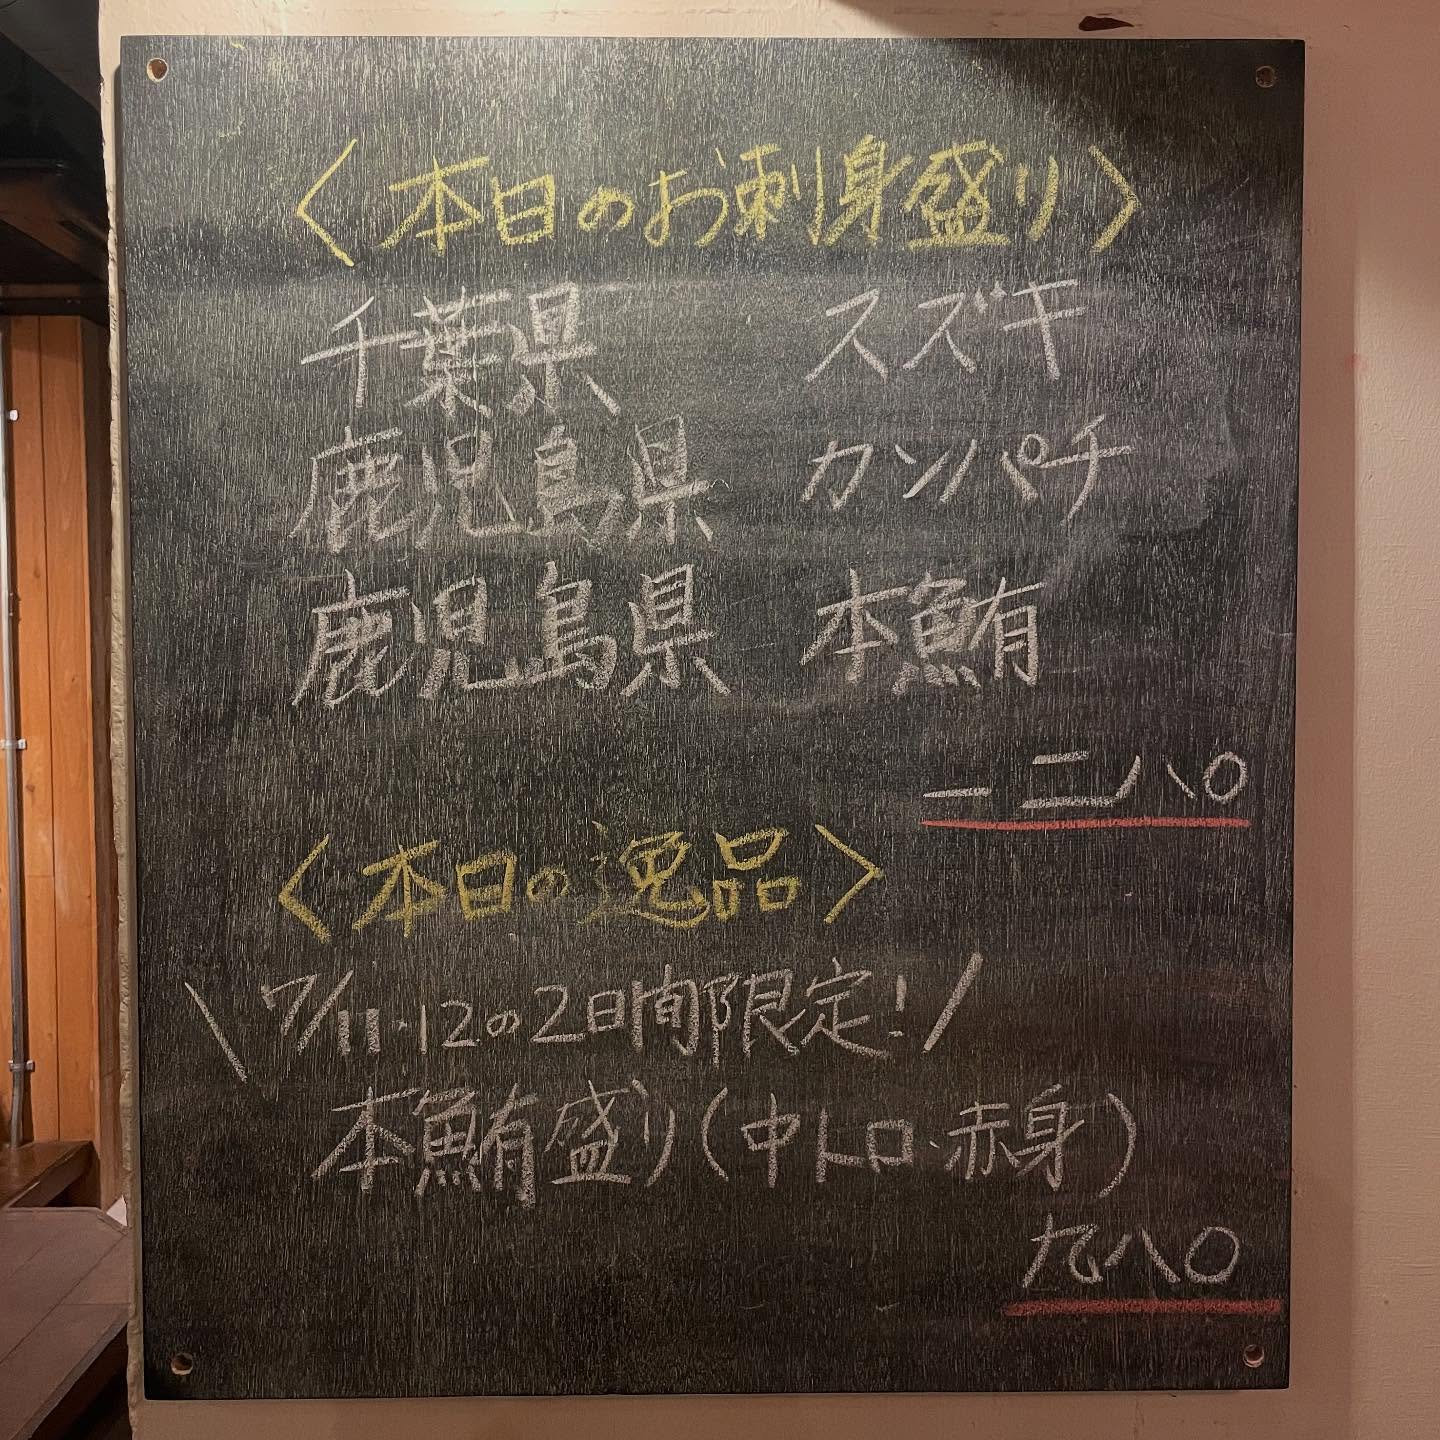 〈本日のお刺身盛り〉
千葉県 スズキ
鹿児島県 カンパチ
鹿児島県 本鮪
二二八〇
〈本日の逸品〉
\7/11・12の2日間限定!/
本鮪盛り(中トロ・赤身)
九八〇